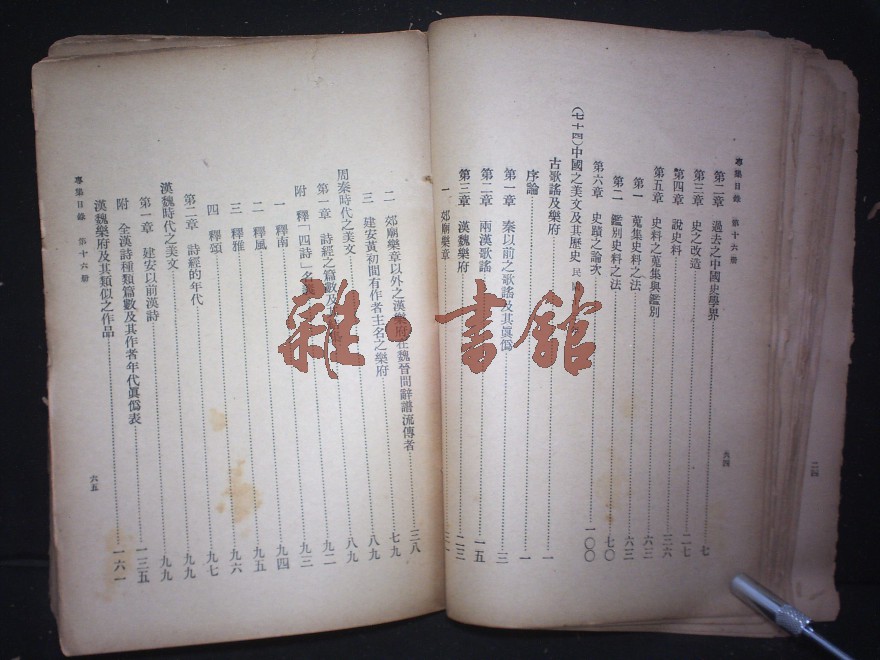 專集目錄 第十六册
第二章 過去之中國史學界 七
第三章 史之改造 二七
第四章 說史料 三六
第五章 史料之蒐集與鑑別 六三
第一 蒐集史料之法 六三
第二 鑑別史料之法 七〇
第六章 史蹟之論次 一〇〇
(七十四)中國之美文及其歷史 民
古歌謠及樂府 一
序論 一
第一章 秦以前之歌謠及其眞僞 三
第二章 兩漢歌謠 一五
第三章 漢魏樂府 二三
一 郊廟樂章 三一
二 郊廟樂章以外之漢樂府在魏晉間辭譜流傳者 三八
三 建安黃初間有作者主名之樂府 七九
周秦時代之美文 八九
第一章 詩經之篇數及 八九
附 釋「四詩」名 九二
一 釋南 九三
二 釋風 九四
三 釋雅 九五
四 釋頌 九六
第二章 詩經的年代 九七
漢魏時代之美文 九九
第一章 建安以前漢詩 九九
附 全漢詩種類篇數及其作者年代眞僞表 一三五
漢魏樂府及其類似之作品 一六一
專集目錄 第十六册
六五
六四
二四
雜·書館